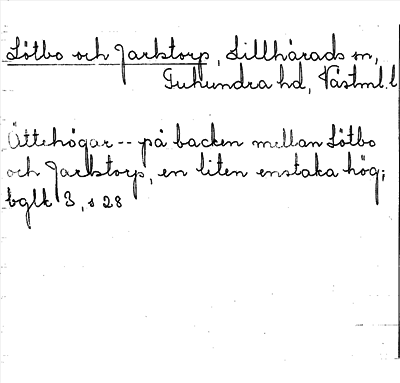 Lötbo och Jarlstorp, Lillhärads sn,
Tuhundra hd, Västml. l
Ättehögar -- på backen mellan Lötbo
och Jarlstorp, en liten enstaka hög;
bglk 3, s 28